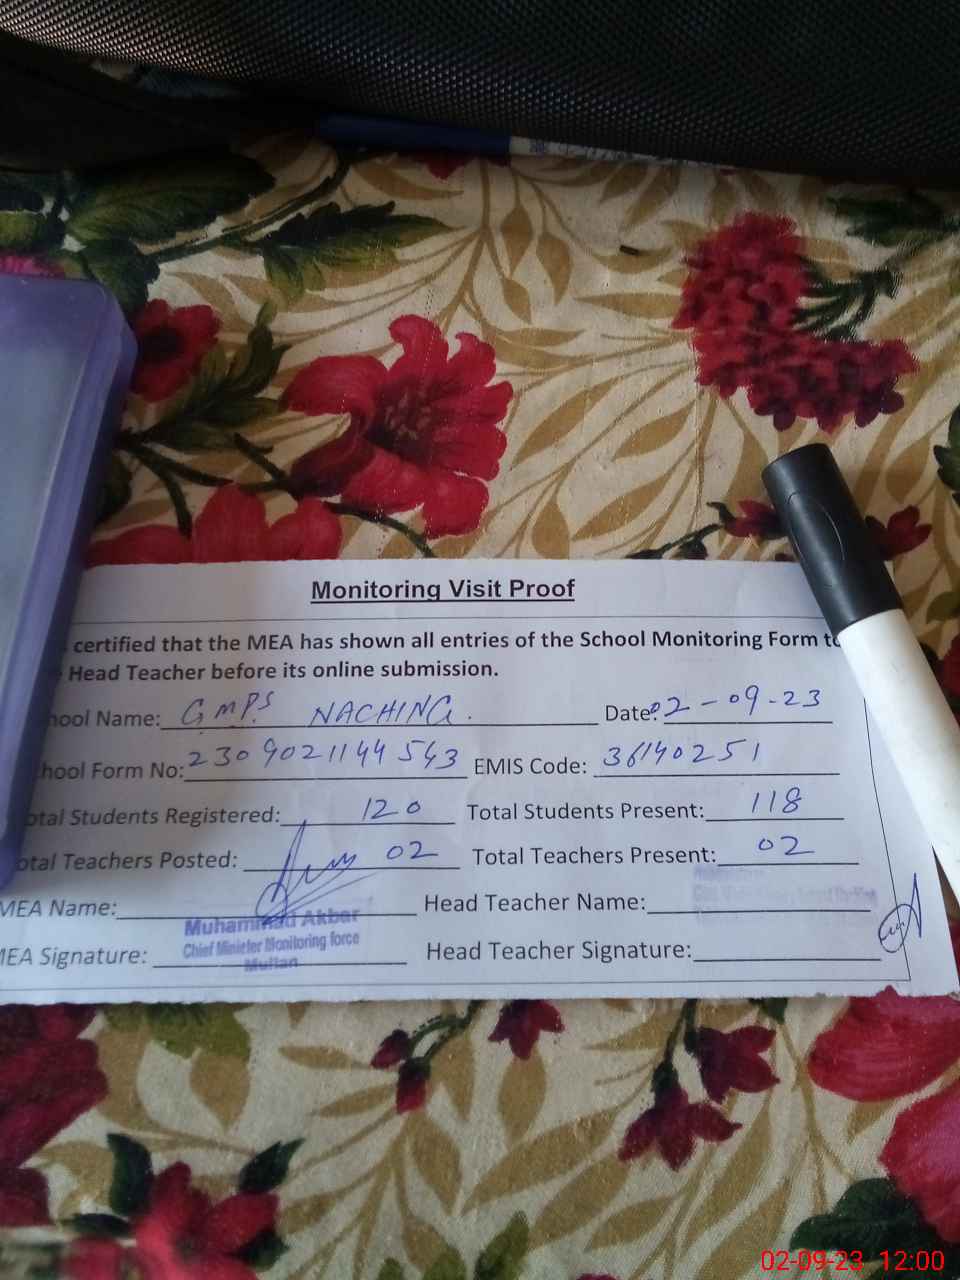 Monitoring Visit Proof
certified that the MEA has shown all entries of the School Monitoring Form to
Head Teacher before its online submission.
hool Name: GMPS NACHING. Date: 02-09-23
hool Form No: 2309021144543 EMIS Code: 36140251
otal Students Registered: 120 Total Students Present: 118
otal Teachers Posted: 02 Total Teachers Present: 02
MEA Name: Head Teacher Name:
Muhammad Akbar
Chief Minister Monitoring force
Multan
MEA Signature: Head Teacher Signature:
02-09-23 12:00